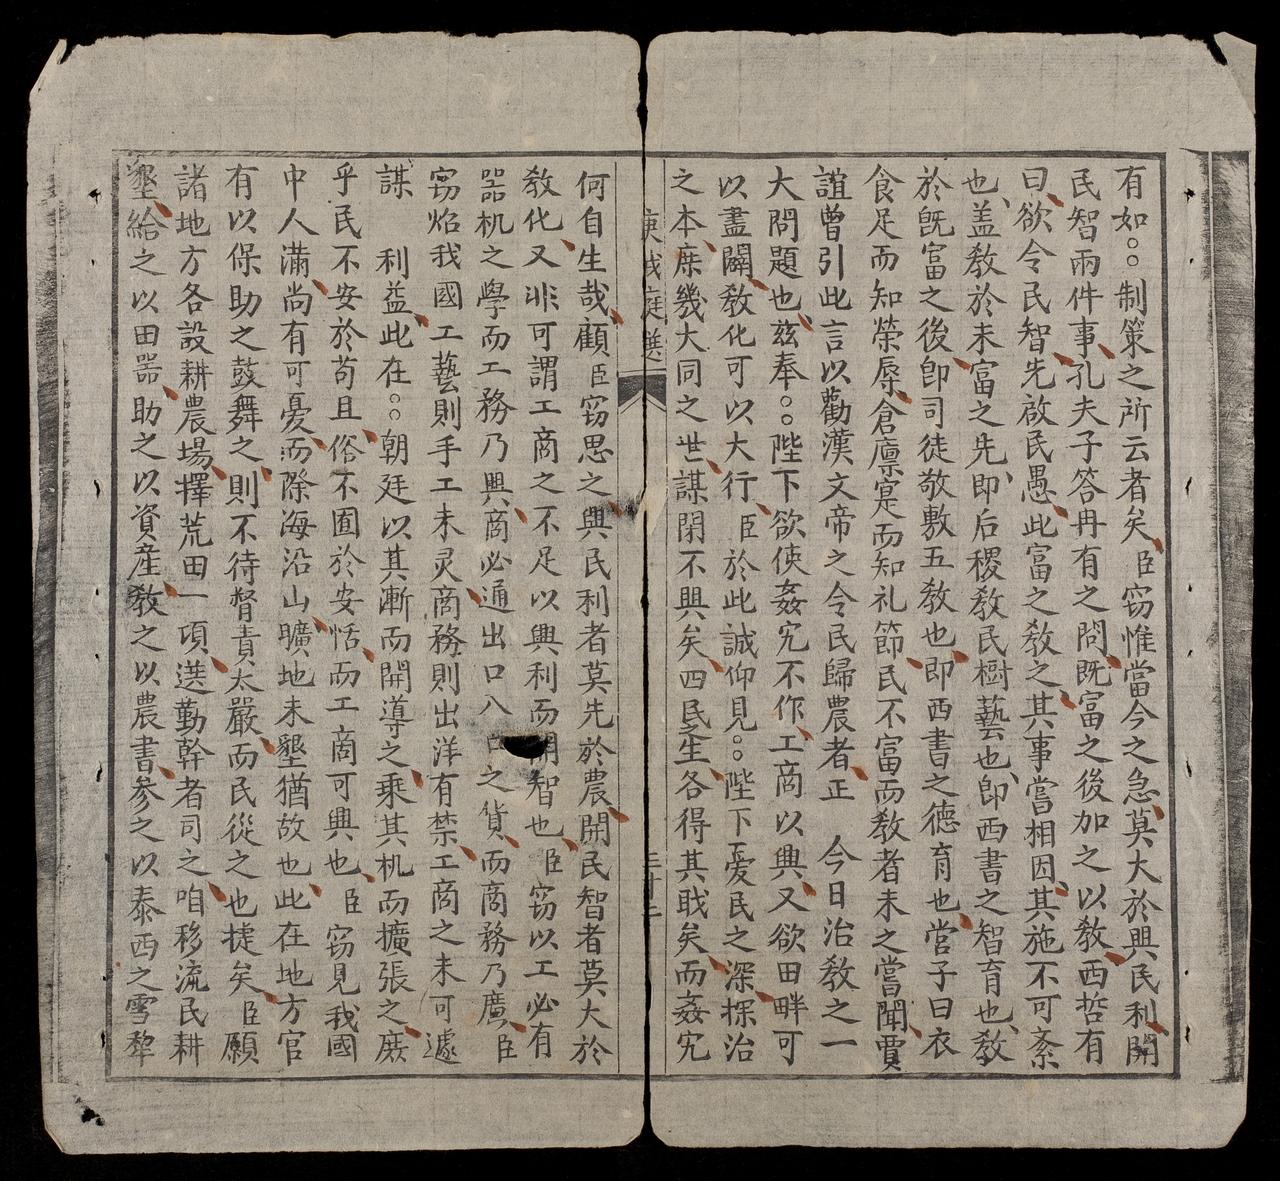 有如○○制策之所云者矣臣窃惟當今之急莫大於興民利開
民智兩件事孔夫子答冉有之問既富之後加之以敎西哲有
曰欲令民智先啟民愚此富之敎之其事嘗相因其施不可紊
也盖敎於未富之先即后稷敎民樹藝也即西書之智育也敎
於既富之後即司徒敬敷五敎也即西書之德育也管子曰衣
食足而知榮辱倉廪寔而知礼節民不富而敎者未之嘗聞賈
誼曾引此言以勸漢文帝之令民歸農者正 今日治敎之一
大問題也兹奉○○陛下欲使姦宄不作工商以興又欲田畔可
以盡闢敎化可以大行臣於此誠仰見○○陛下憂民之深探治
之本庶幾大同之世謀閉不興矣四民生各得其戢矣而姦宄
庚戌庭選
三十二
何自生哉顧臣窃思之興民利者莫先於農開民智者莫大於
敎化又非可謂工商之不足以興利而開智也臣窃以工必有
器机之學而工務乃興商必通出口入口之貨而商務乃廣臣
窃炤我國工藝則手工未灵商務則出洋有禁工商之未可遽
謀 利益此在○○朝廷以其漸而開導之乗其机而擴張之庶
乎民不安於苟且俗不囿於安恬而工商可興也臣窃見我國
中人滿尚有可憂而際海沿山曠地未墾猶故也此在地方官
有以保助之鼓舞之則不待督責太嚴而民從之也捷矣臣願
諸地方各設耕農塲擇荒田一項選勤幹者司之咱移流民耕
墾給之以田器助之以資産敎之以農書参之以泰西之雪犂